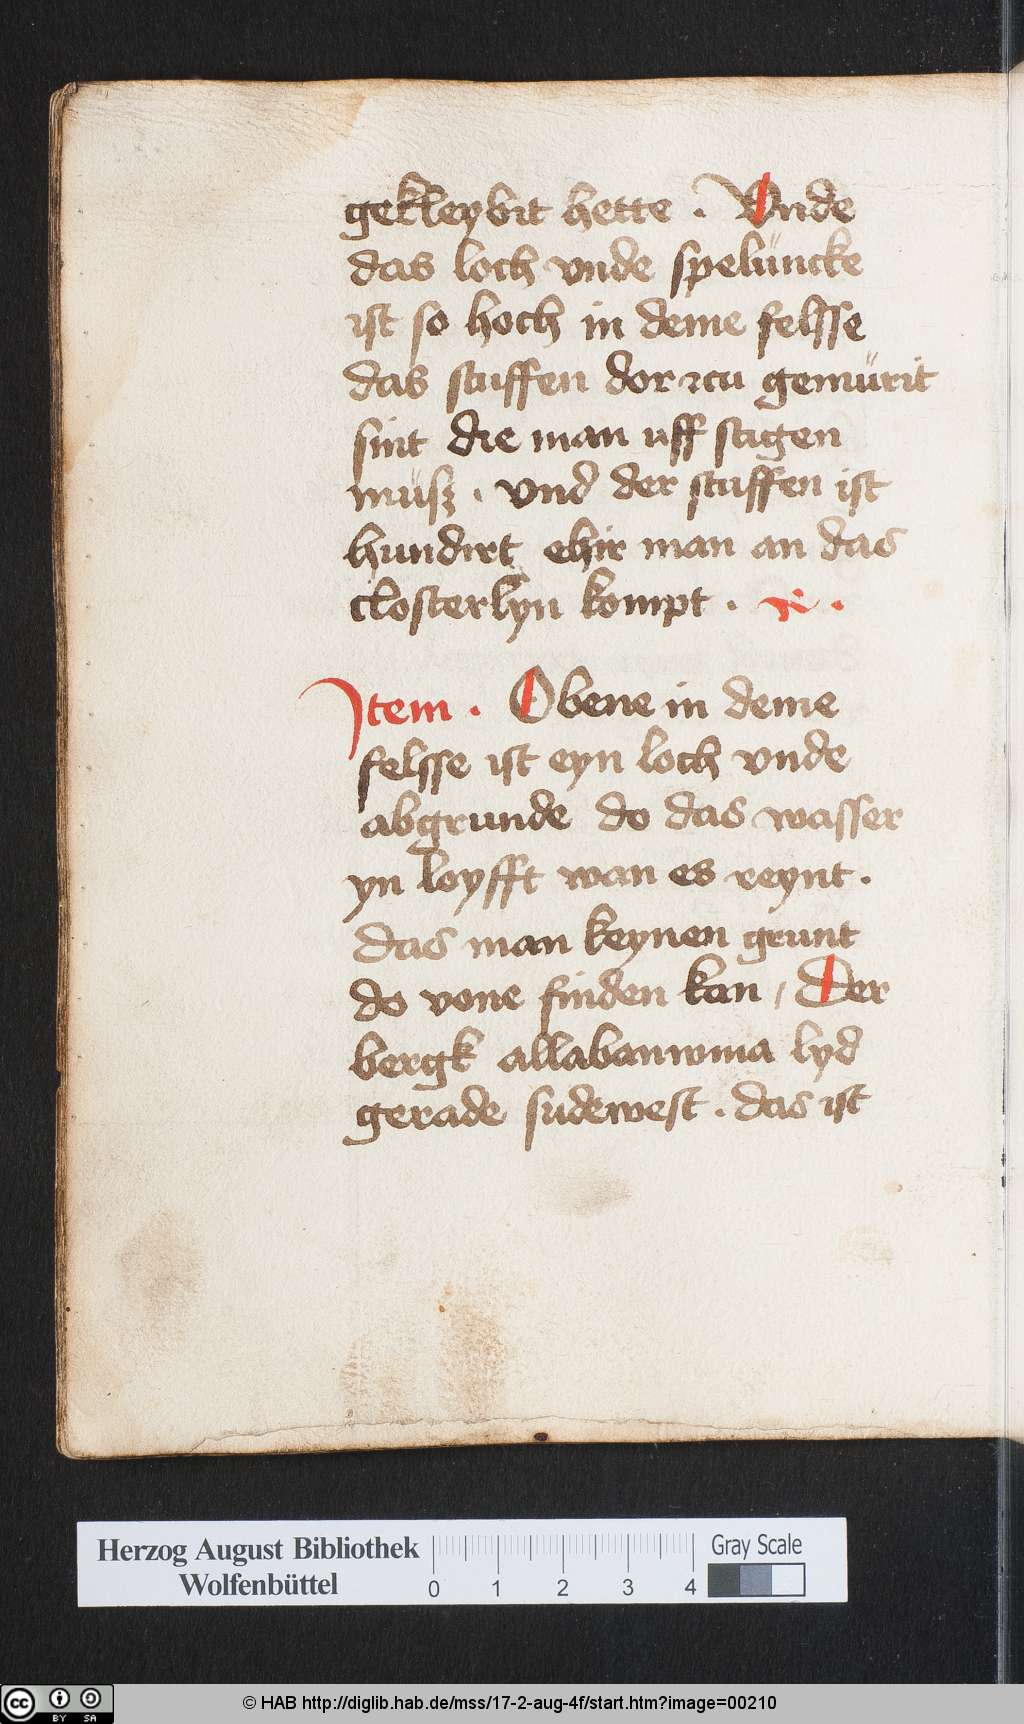 gekleybit hette . Vnde
das loch vnde spelüncke
ist so hoch in deme felsse
das stuffen dor zcu gemürit
sint die man uff stigen
müsz . vnd der stuffen ist
hundirt ehir man an das
closterlyn kompt .
Item . Obene in deme
felsse ist eyn loch vnde
abgrunde do das wasser
yn loyfft wan es reynt .
das man keynen grunt
do vone finden kan / Der
bergk allabanwma lyd
gerade sudewest . das ist
Herzog August Bibliothek
Wolfenbüttel
0 1 2 3 4
Gray Scale
cc BY SA
© HAB http://diglib.hab.de/mss/17-2-aug-4f/start.htm?image=00210